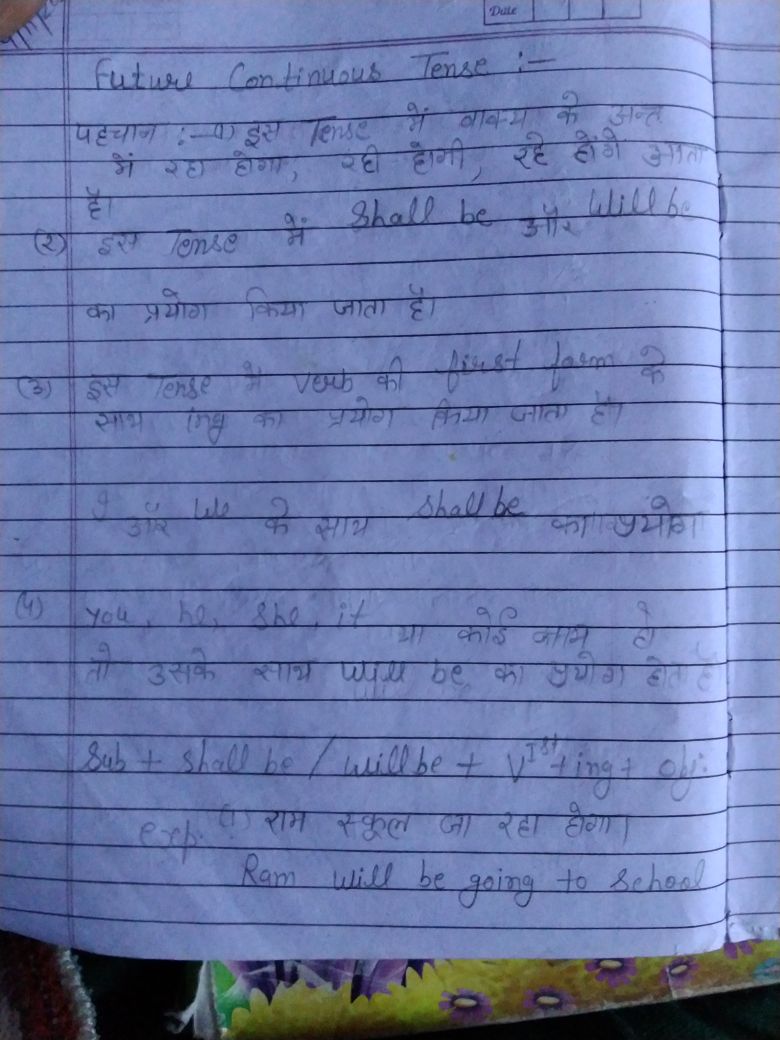 Date
Future Continuous Tense :-
पहचान :- (1) इस Tense में वाक्य के अन्त
में रहा होगा, रही होगी, रहे होंगे आता
है।
(2) इस Tense में Shall be और Will be
का प्रयोग किया जाता है।
(3) इस Tense में Verb की first form के
साथ ing का प्रयोग किया जाता है।
I और We के साथ Shall be का प्रयोग
(4) you, he, she, it या कोई नाम हो
तो उसके साथ will be का प्रयोग होता है
Sub + shall be / will be + V Ist + ing + obj.
exp. (1) राम स्कूल जा रहा होगा।
Ram will be going to school